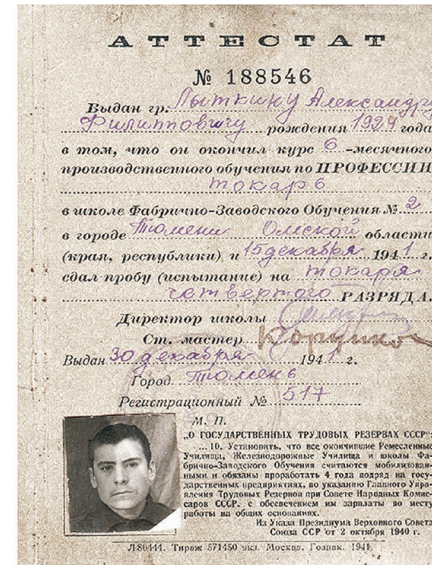 АТТЕСТАТ
№ 188546
Выдан гр. Лыткину Александру
Филипповичу рождения 1924 года
в том, что он окончил курс 6-месячного
производственного обучения по ПРОФЕССИИ
токарь
в школе Фабрично-Заводского Обучения № 2
в городе Тюмени Омской области
(края, республики) и 15 декабря 1941 г.
сдал пробу (испытание) на токаря
четвертого РАЗРЯДА.
Директор школы
Ст. мастер
Выдан 30 декабря 1941 г.
Город Тюмень
Регистрационный № 517
М. П.
„О ГОСУДАРСТВЕННЫХ ТРУДОВЫХ РЕЗЕРВАХ СССР“:
...10. Установить, что все окончившие Ремесленные
Училища, Железнодорожные Училища и школы Фа-
брично-Заводского Обучения считаются мобилизован-
ными и обязаны проработать 4 года подряд на госу-
дарственных предприятиях, по указанию Главного Упра-
вления Трудовых Резервов при Совете Народных Комис-
саров СССР, с обеспечением им зарплаты по месту
работы на общих основаниях.
Из Указа Президиума Верховного Совета
Союза ССР от 2 октября 1940 г.
Л80444. Тираж 571450 экз. Москва. Гознак. 1941.